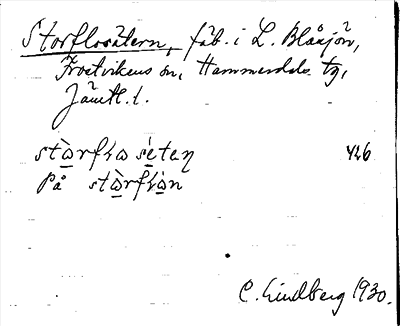 Storflosätern, fäb. i L. Blåsjön,
Frostvikens sn, Hammerdals tg,
Jämtl. l.
stòrfɩo séteɳ 426
på stòrfɩòn
C. Lindberg 1930.